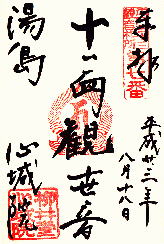 奉拝
平成廿三年
八月十八日
十一面観世音
湯島
心城院